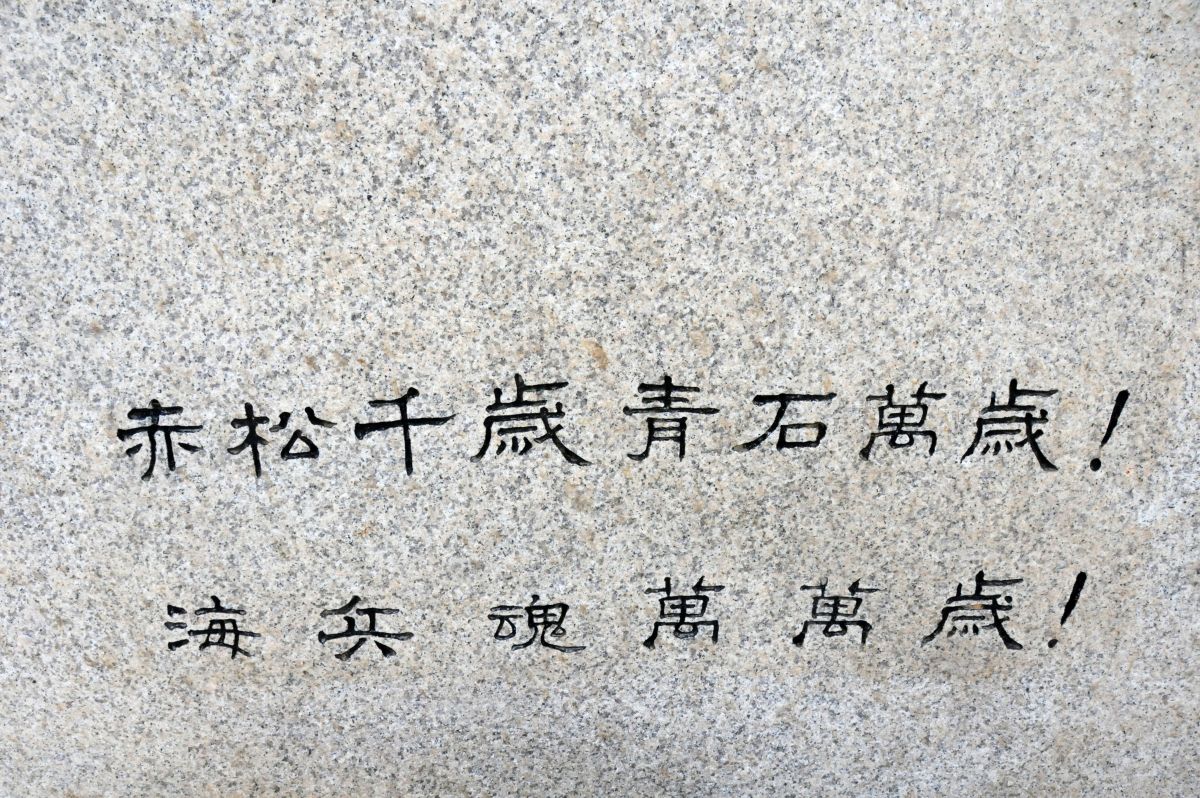 赤松千歲靑石萬歲!
海兵魂萬萬歲!